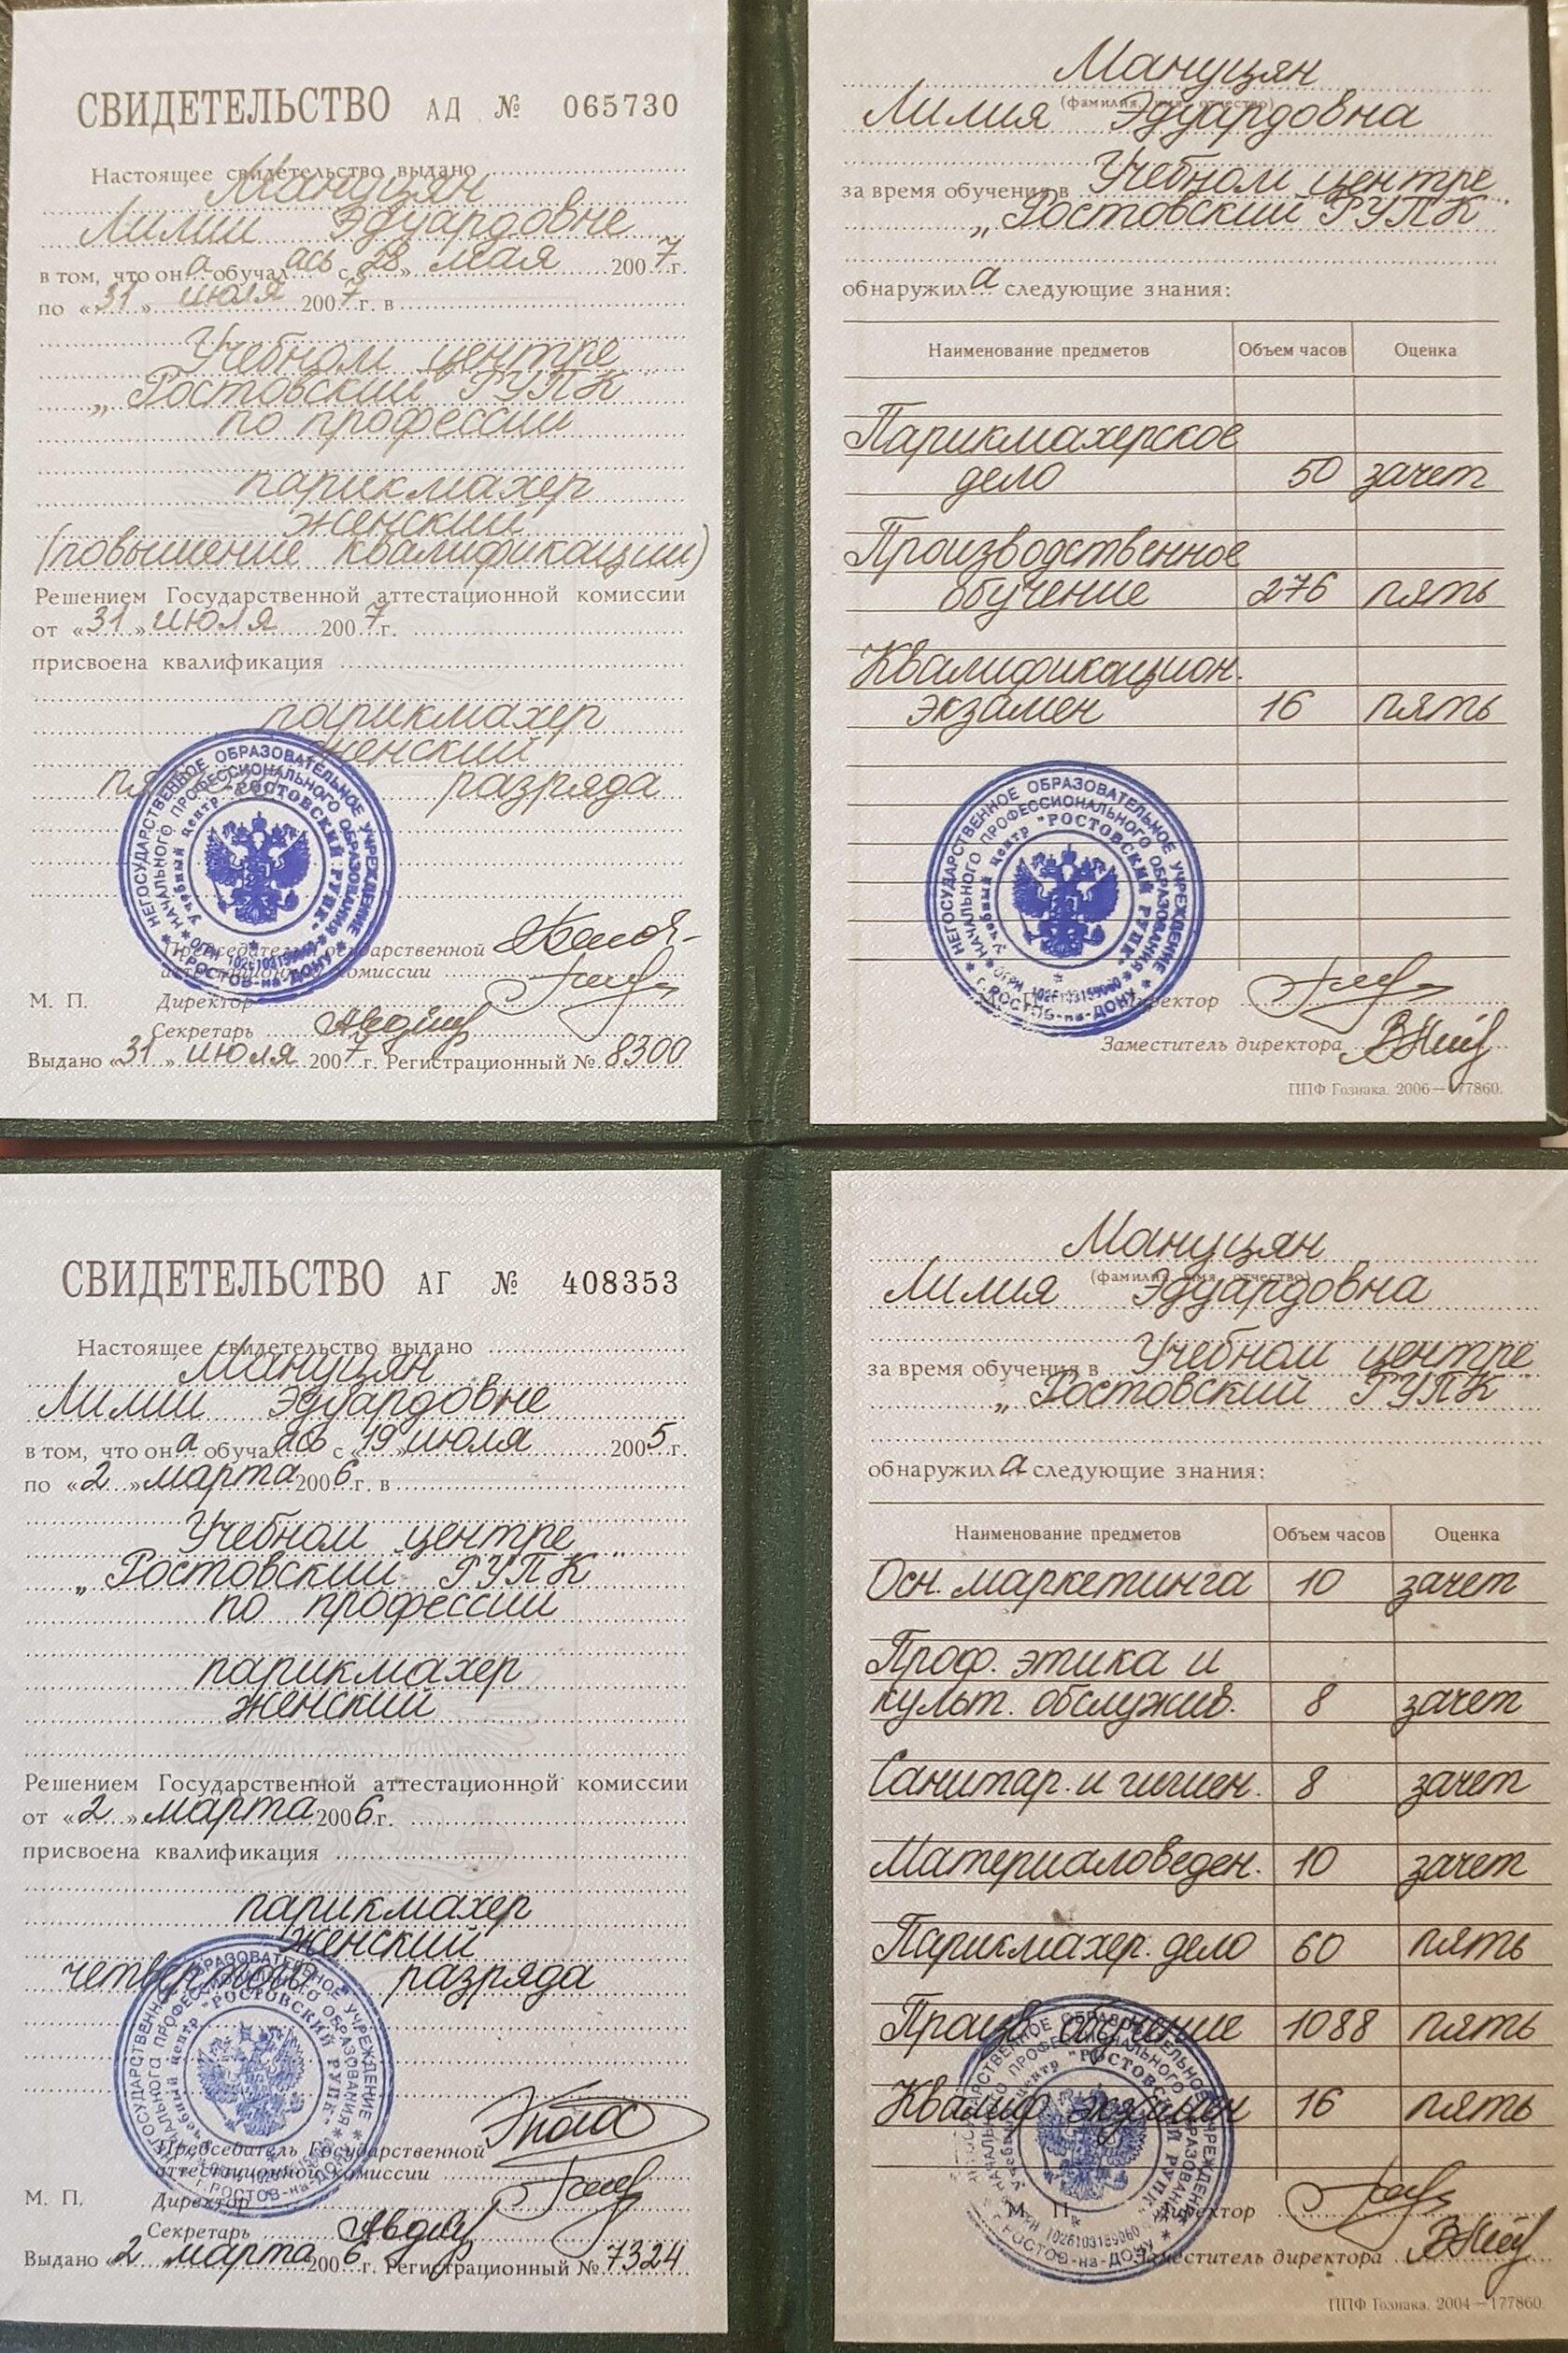 СВИДЕТЕЛЬСТВО АД № 065730
Настоящее свидетельство выдано
Мануцян
Лилии Эдуардовне
в том, что она обучалась с «28» мая 2007г.
по «31» июля 2007г. в
Учебном центре
„Ростовский РУПК"
по профессии
парикмахер
женский
(повышение квалификации)
Решением Государственной аттестационной комиссии
от «31» июля 2007г.
присвоена квалификация
парикмахер
женский
разряда
НЕГОСУДАРСТВЕННОЕ ОБРАЗОВАТЕЛЬНОЕ УЧРЕЖДЕНИЕ
НАЧАЛЬНОГО ПРОФЕССИОНАЛЬНОГО ОБРАЗОВАНИЯ
Учебный центр "РОСТОВСКИЙ РУПК"
г. РОСТОВ-на-ДОНУ
Председатель Государственной
аттестационной комиссии
М. П. Директор
Секретарь
Выдано «31» июля 2007г. Регистрационный № 8300
Мануцян
(фамилия, имя, отчество)
Лилия Эдуардовна
за время обучения в Учебном центре
„Ростовский РУПК"
обнаружила следующие знания:
Наименование предметов Объем часов Оценка
Парикмахерское
дело 50 зачет
Производственное
обучение 276 пять
Квалификацион.
экзамен 16 пять
НЕГОСУДАРСТВЕННОЕ ОБРАЗОВАТЕЛЬНОЕ УЧРЕЖДЕНИЕ
НАЧАЛЬНОГО ПРОФЕССИОНАЛЬНОГО ОБРАЗОВАНИЯ
Учебный центр "РОСТОВСКИЙ РУПК"
ОГРН 1026103159060
г. РОСТОВ-на-ДОНУ
М. П. Директор
Заместитель директора
ППФ Гознака. 2006—177860.
СВИДЕТЕЛЬСТВО АГ № 408353
Настоящее свидетельство выдано
Мануцян
Лилии Эдуардовне
в том, что она обучалась с «19» июля 2005г.
по «2» марта 2006г. в
Учебном центре
„Ростовский РУПК"
по профессии
парикмахер
женский
Решением Государственной аттестационной комиссии
от «2» марта 2006г.
присвоена квалификация
парикмахер
женский
четвертого разряда
НЕГОСУДАРСТВЕННОЕ ОБРАЗОВАТЕЛЬНОЕ УЧРЕЖДЕНИЕ
НАЧАЛЬНОГО ПРОФЕССИОНАЛЬНОГО ОБРАЗОВАНИЯ
Учебный центр "РОСТОВСКИЙ РУПК"
г. РОСТОВ-на-ДОНУ
Председатель Государственной
аттестационной комиссии
М. П. Директор
Секретарь
Выдано «2» марта 2006г. Регистрационный № 7324
Мануцян
(фамилия, имя, отчество)
Лилия Эдуардовна
за время обучения в Учебном центре
„Ростовский РУПК"
обнаружила следующие знания:
Наименование предметов Объем часов Оценка
Осн. маркетинга 10 зачет
Проф. этика и
культ. обслужив. 8 зачет
Санитар. и гигиен. 8 зачет
Материаловеден. 10 зачет
Парикмахер. дело 60 пять
Произв. обучение 1088 пять
Квалиф экзамен 16 пять
НЕГОСУДАРСТВЕННОЕ ОБРАЗОВАТЕЛЬНОЕ УЧРЕЖДЕНИЕ
НАЧАЛЬНОГО ПРОФЕССИОНАЛЬНОГО ОБРАЗОВАНИЯ
Учебный центр "РОСТОВСКИЙ РУПК"
ОГРН 1026103159060
г. РОСТОВ-на-ДОНУ
М. П. Директор
Заместитель директора
ППФ Гознака. 2004—177860.